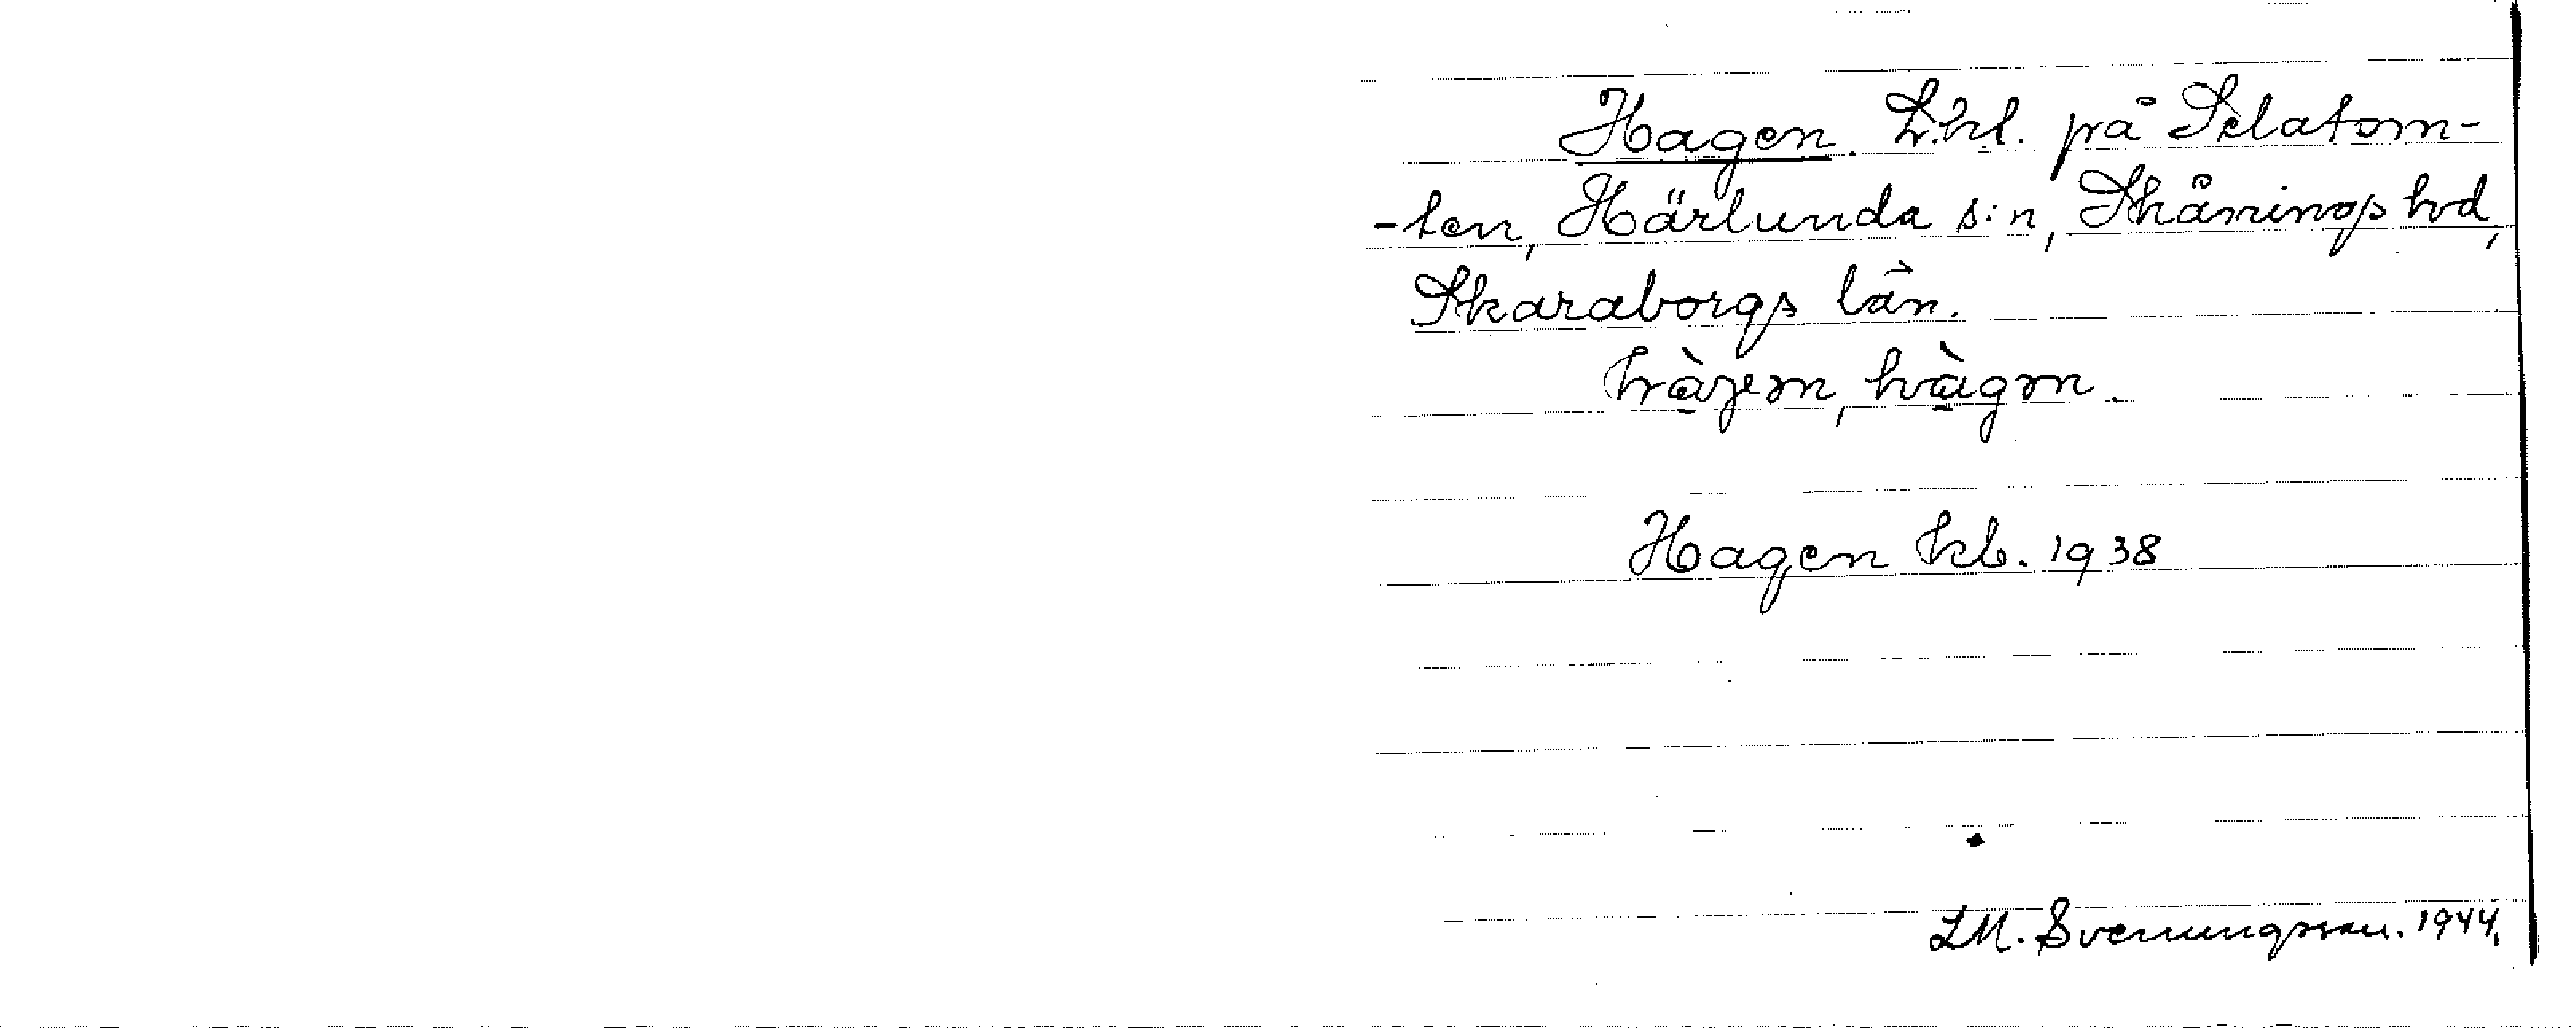 Hagen. L.hl. på Selatom-
-ten, Härlunda s:n, Skånings hd,
Skaraborgs län.
hàgen, hàgen.
Hagen kb. 1938
LM. Svenungsson. 1944.